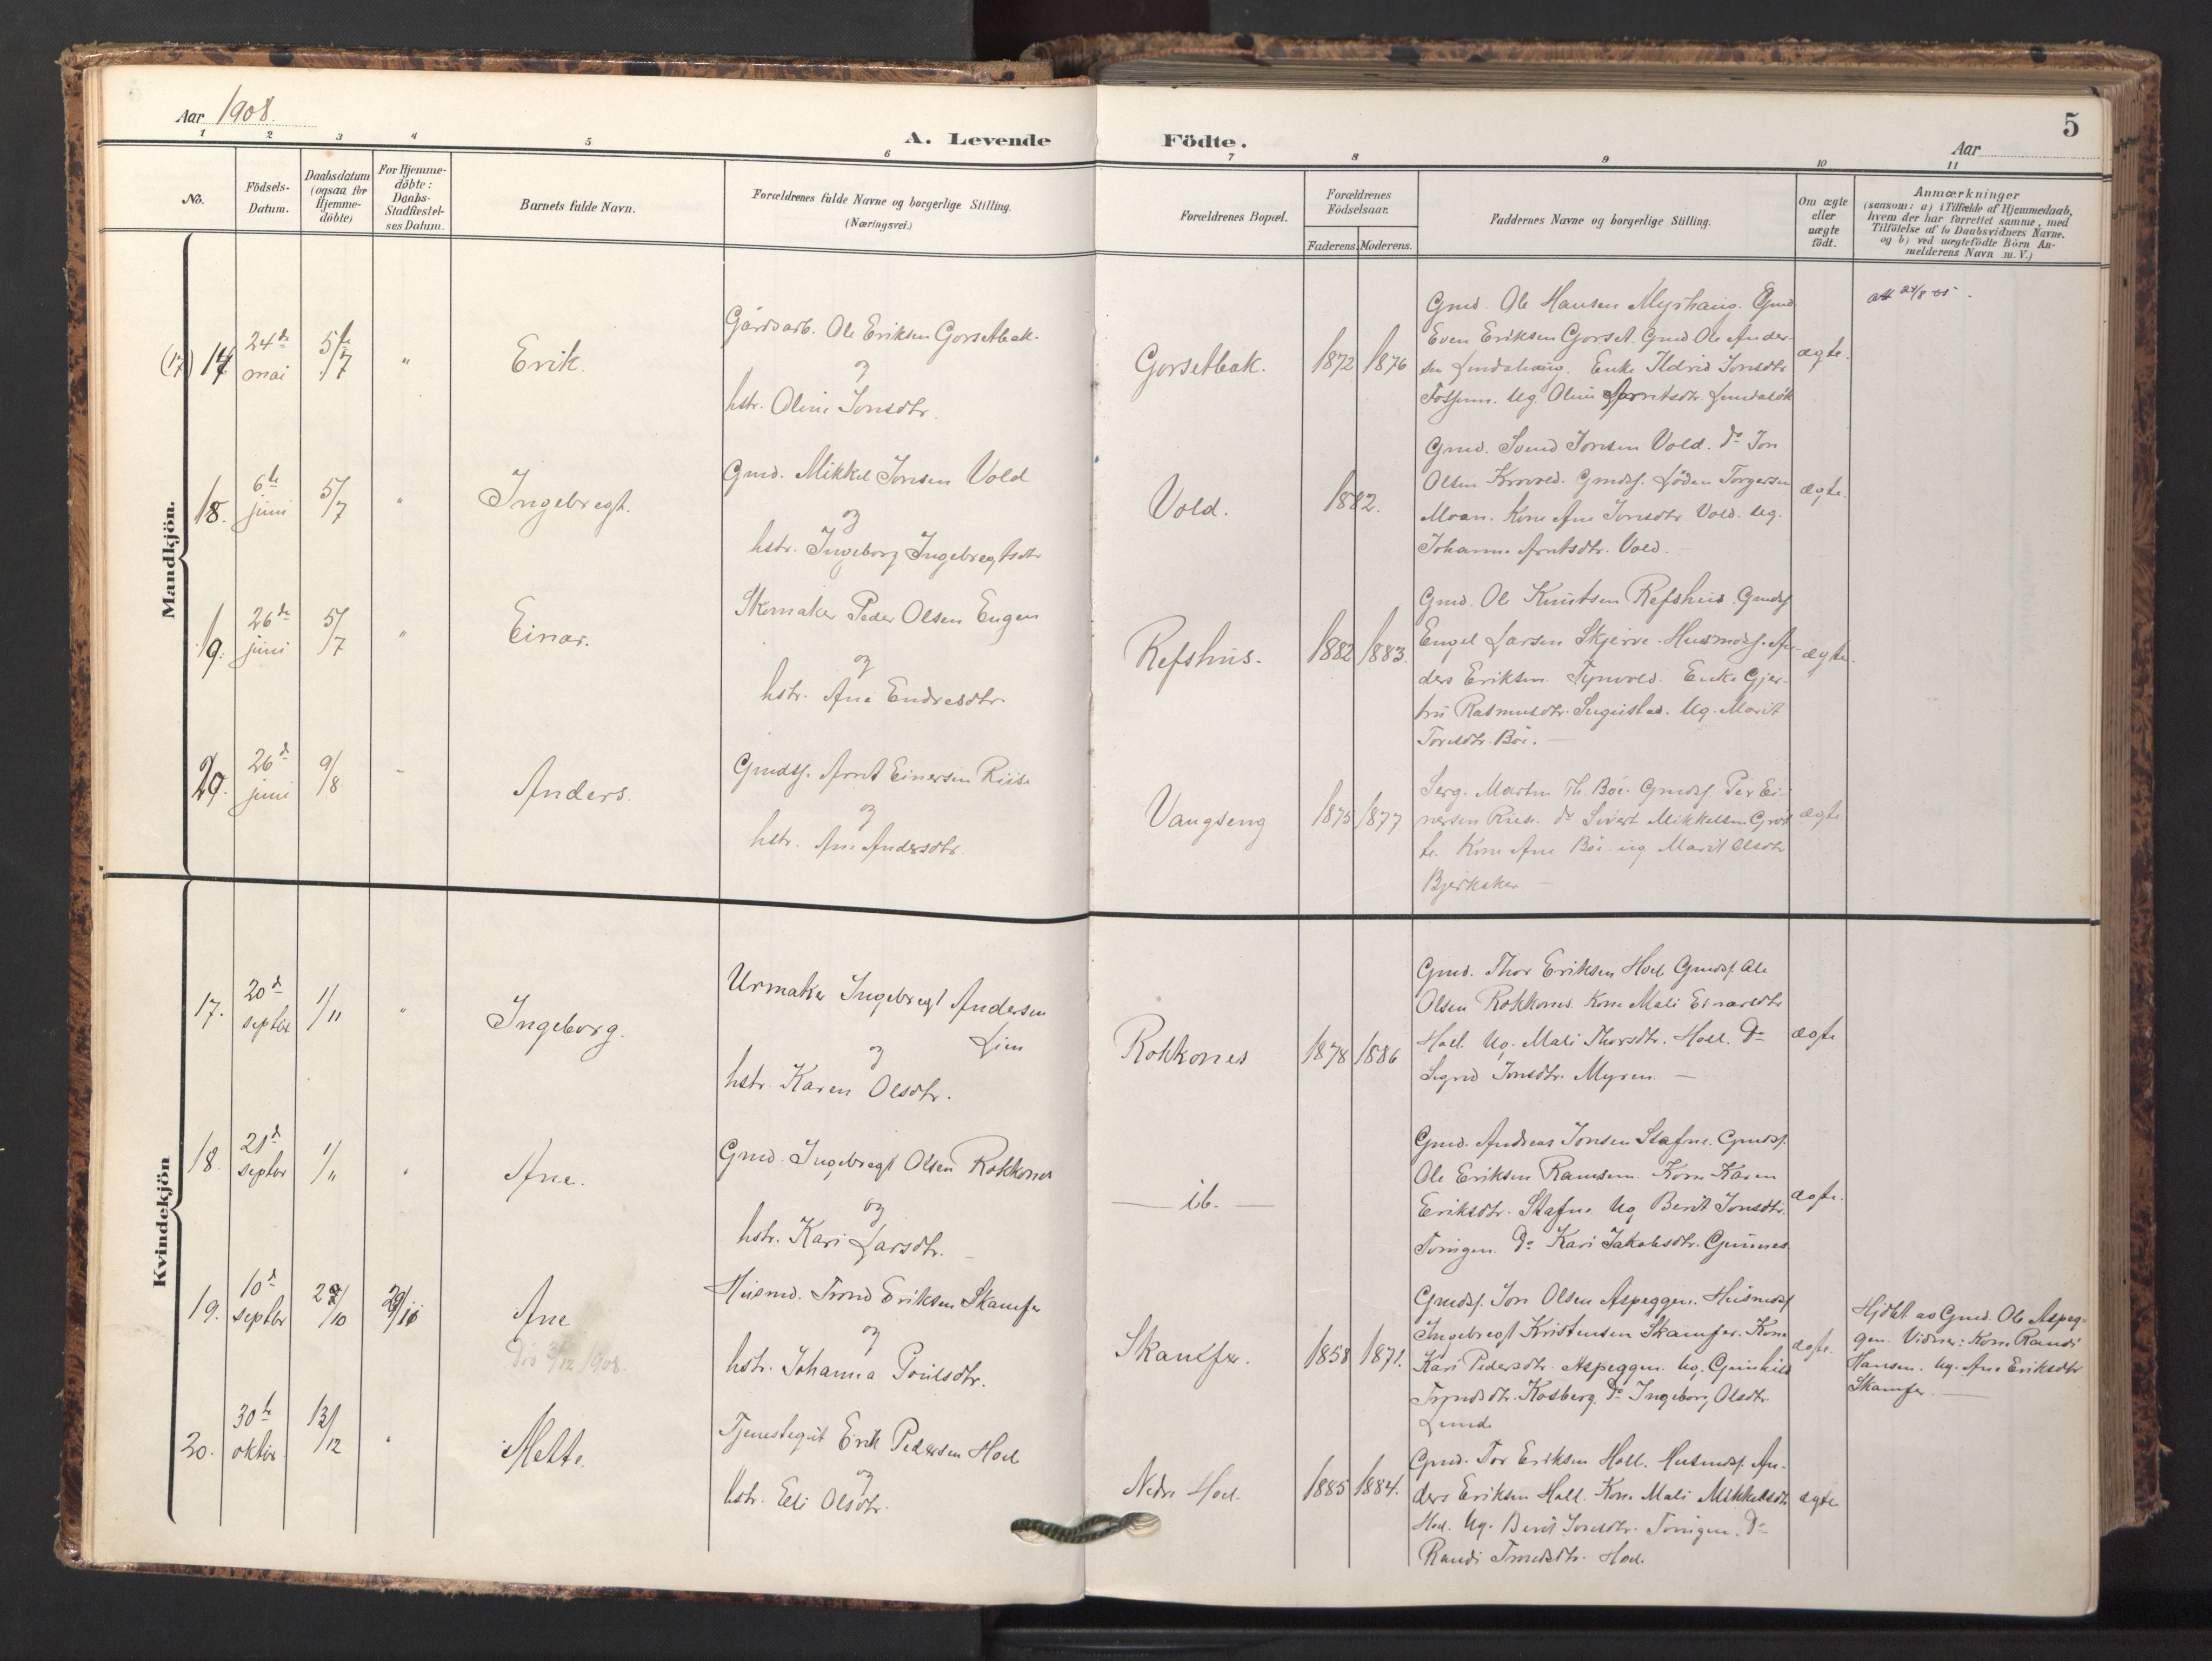 Aar 1908.
A. Levende Födte.
5
Aar
1 2 3 4 5 6 7 8 9 10 11
No.
Födsels-
Datum.
Daabsdatum
(ogsaa for
Hjemme-
döbte)
For Hjemme-
döbte:
Daabs-
Stadfæstel-
ses Datum.
Barnets fulde Navn.
Forældrenes fulde Navne og borgerlige Stilling.
(Næringsvei.)
Forældrenes Bopæl.
Forældrenes
Födselsaar.
Faderens. Moderens.
Faddernes Navne og borgerlige Stilling.
Om ægte
eller
uægte
födt.
Anmærkninger
(saasom: a) i Tilfælde af Hjemmedaab,
hvem der har forrettet samme, med
Tilföielse af to Daabsvidners Navne.
og b) ved uægtefödte Börn An-
melderens Navn m. V.)
Mandkjön.
(17) 17
24de
mai
5te/7
"
Erik.
Gårdarb. Ole Eriksen Gorsetbak.
og
hstr. Oline Jonsdtr.
Gorsetbak.
1872 1876
Gmd. Ole Hansen Myrhaug. Gmd
Even Eriksen Gorset. Gmd Ole Ander-
sen Lundahaug. Enke Ildrid Jonsdtr
Fossum. Ug. Oline Arntsdtr. Lundalök
ægte.
att 24/8
18.
6te
juni
5/7
"
Ingebregt.
Gmd. Mikkel Jonsen Vold
og
hstr. Ingeborg Ingebregtsdtr
Vold.
1882.
Gmd. Svend Jonsen Vold. do Jon
Olsen Krovold. Gmds. Löden Torgersen
Moan. Kone Ane Jonsdtr Vold. ug.
Johanne Arntsdtr. Vold.
ægte.
19.
26de
juni
5/7
"
Einar.
Skomaker Peder Olsen Eugen
og
hstr. Ane Endresdtr.
Refshus.
1882 1883.
Gmd. Ole Knutsen Refshus. Gmds
Engel Larsen Skjerve. Husmds. An-
ders Eriksen Tynvold. Enke Gjer-
tru Rasmusdtr. Ingristad. Ug. Marit
Toresdtr. Böe. —
ægte.
20.
26d
juni
9/8
"
Anders.
Gmds. Arnt Einersen Riise
og
hstr. Ane Andersdtr.
Vangseng
1875 1877
Serg. Martin Th. Böe. Gmds. Per Ei-
nersen Riise. do Sivert Mikkelsen Gröt
te. Kone Ane Böe. ug Marit Olsdtr
Bjerkaker —
ægte
Kvindekjön
17.
20d
septbr
1/11
"
Ingeborg.
Urmaker Ingebregt Andersen
Lien
og
hstr. Karen Olsdtr.
Rokkones
1878 1886
Gmd. Thor Eriksen Hoel. Gmds. Ole
Olsen Rokkones. Kone Mali Einarsdtr
Hoel. Ug. Mali Thorsdtr. Hoel. Do
Sigrid Jonsdtr. Myren. —
ægte
18.
21d
septbr
1/11
"
Ane.
Gmd. Ingebregt Olsen Rokkones
og
hstr. Kari Larsdtr.
— ib. —
Gmd. Andreas Jonsen Stafne. Gmds.
Ole Eriksen Ramsem. Kone Karen
Eriksdtr. Stafne. Ug Berit Jonsdtr.
Tvingen. Do Kari Jakobsdtr. Gunnes.
ægte.
19.
10d
septbr
22/10
29/10
Ane
Död 3/12 1908.
Husmd. Trond Eriksen Skamfer
og
hstr. Johanna Poulsdtr.
Skamfer.
1858 1871.
Gmds. Jon Olsen Aspeggen. Husmds
Ingebregt Kristensen Skamfer. Kone
Kari Pedersdtr. Aspeggen. Ug. Gunhild
Trondsdtr. Kosberg. Do Ingeborg Olsdtr.
Lund.
ægte.
Hjdbt av Gmd. Ole Aspeg-
gen. Vidner: Kone Randi
Hansen. Ug. Ane Eriksdtr
Skamfer. —
20.
30te
oktbr.
13/12
"
Mette.
Tjenestegut Erik Pedersen Hoel
og
hstr. Eli Olsdtr.
Nedre Hoel.
1885 1884.
Gmd. Tor Eriksen Hoel. Husmds. An-
ders Eriksen Hoel. Kone Mali Mikkelsdtr
Hoel. Ug. Berit Jonsdtr. Tvingen. Do
Randi Trondsdtr. Hoel.
ægte